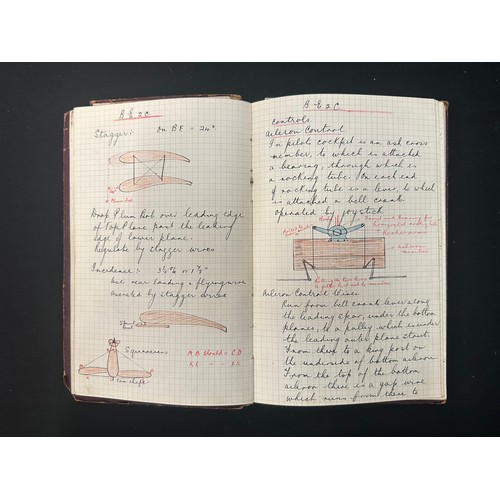 B E 2C
Stagger: On BE = 24"
Drop Plum Bob over leading edge
of Top Plane past the leading
edge of lower plane.
Regulate by stagger wires
Incidence: 3½° or
use rear landing & flying wires
assisted by stagger wires
Squareness
A B should = C D
B E 2 C
Controls
Aileron Control
In pilots cockpit is an ash cross
member, to which is attached
a bearing, through which is
a rocking tube. On each end
of rocking tube is a lever, to which
is attached a bell crank
operated by joystick
Aileron Control Wires
Run from bell crank lever along
the leading spar, under the bottom
planes, to a pulley which is under
the leading outer plane strut.
From thep to a king post on
the underside of bottom aileron
From the top of the bottom
aileron there is a gap wire
which runs from there to